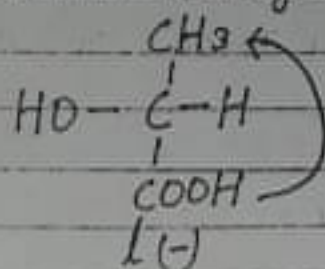 CH3
HO-C-H
COOH
l (-)